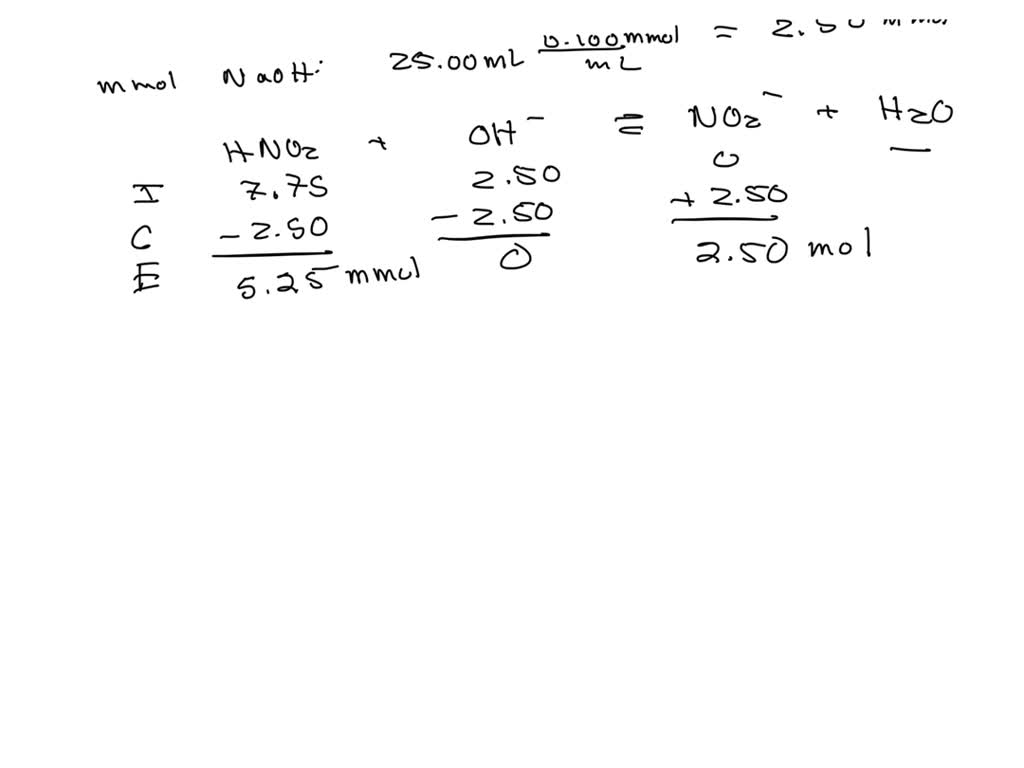 mmol NaOH: 25.00 mL 0.100 mmol/mL = 2.50 mmol
HNO₂ + OH⁻ = NO₂⁻ + H₂O
I 7.75 2.50 0 —
C - 2.50 - 2.50 + 2.50
E 5.25 mmol 0 2.50 mol